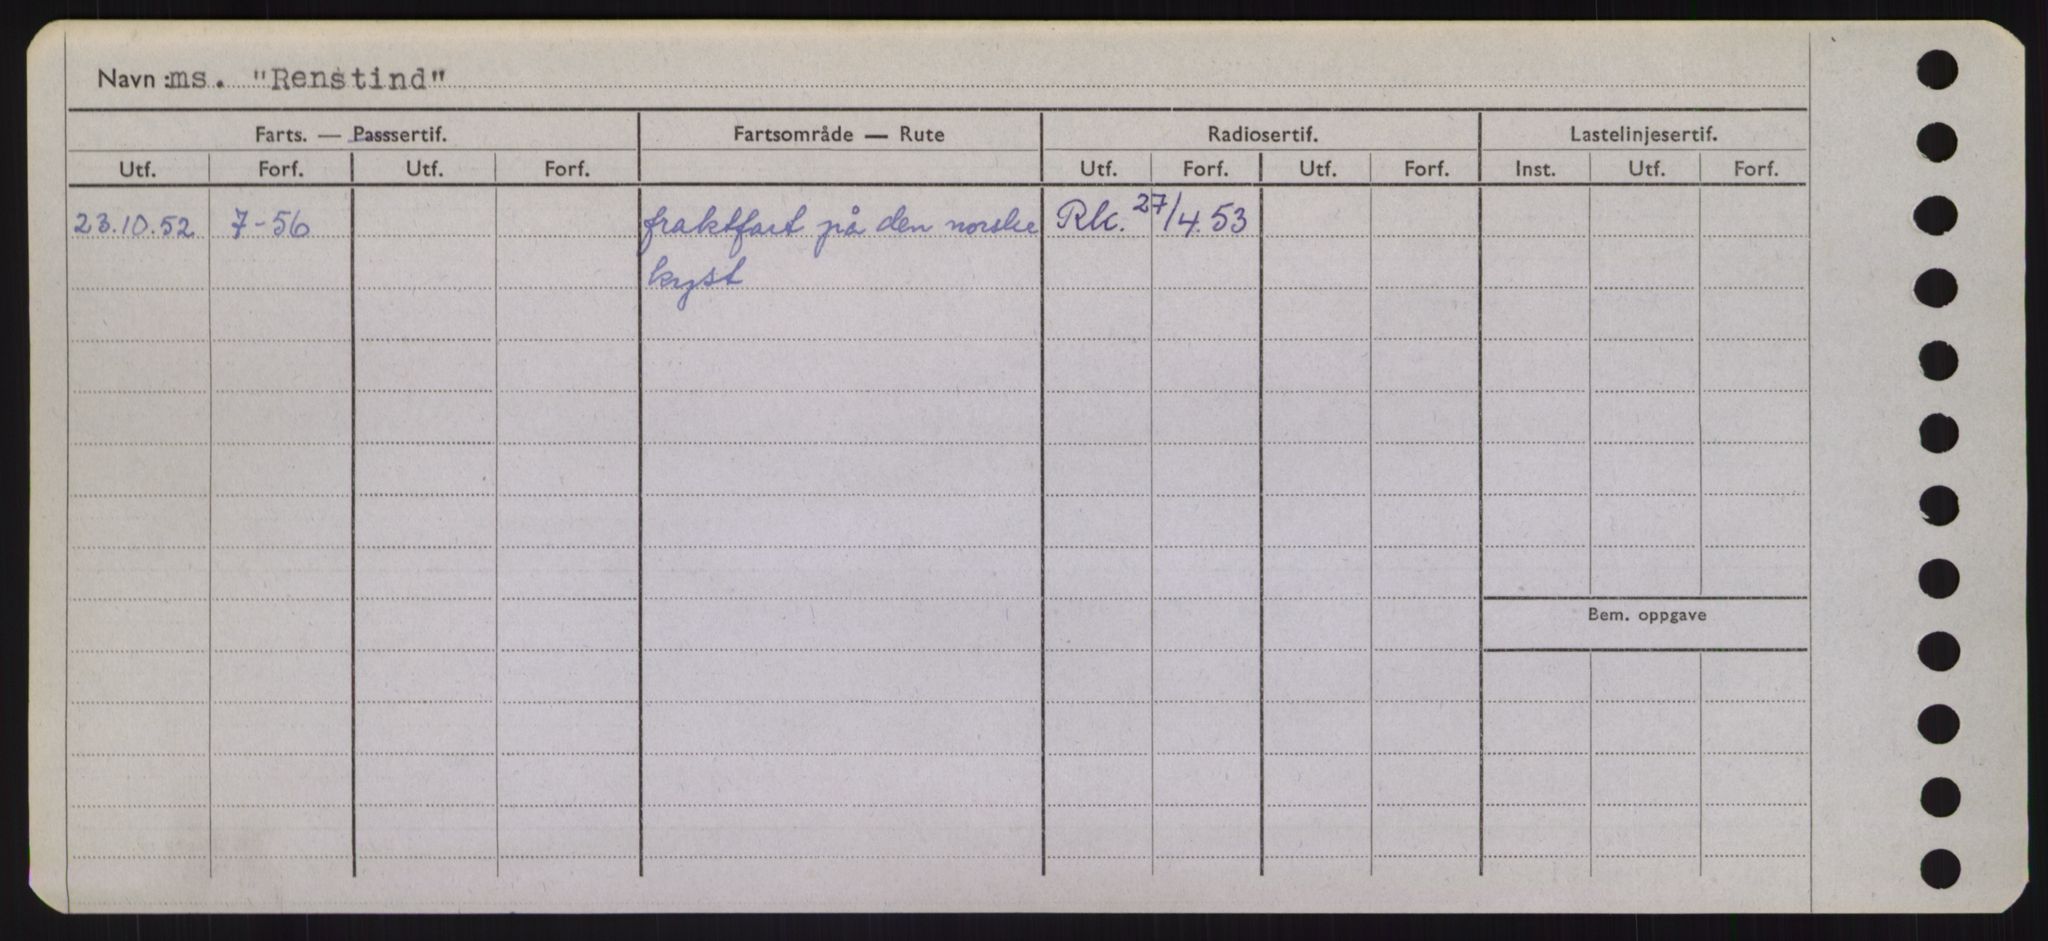 Navn: ms. "Renstind"
Farts. — Passsertif. Fartsområde — Rute Radiosertif. Lastelinjesertif.
Utf. Forf. Utf. Forf. Utf. Forf. Utf. Forf. Inst. Utf. Forf.
23.10.52 7-56 fraktfart på den norske Rk. 27/4.53
kyst
Bem. oppgave